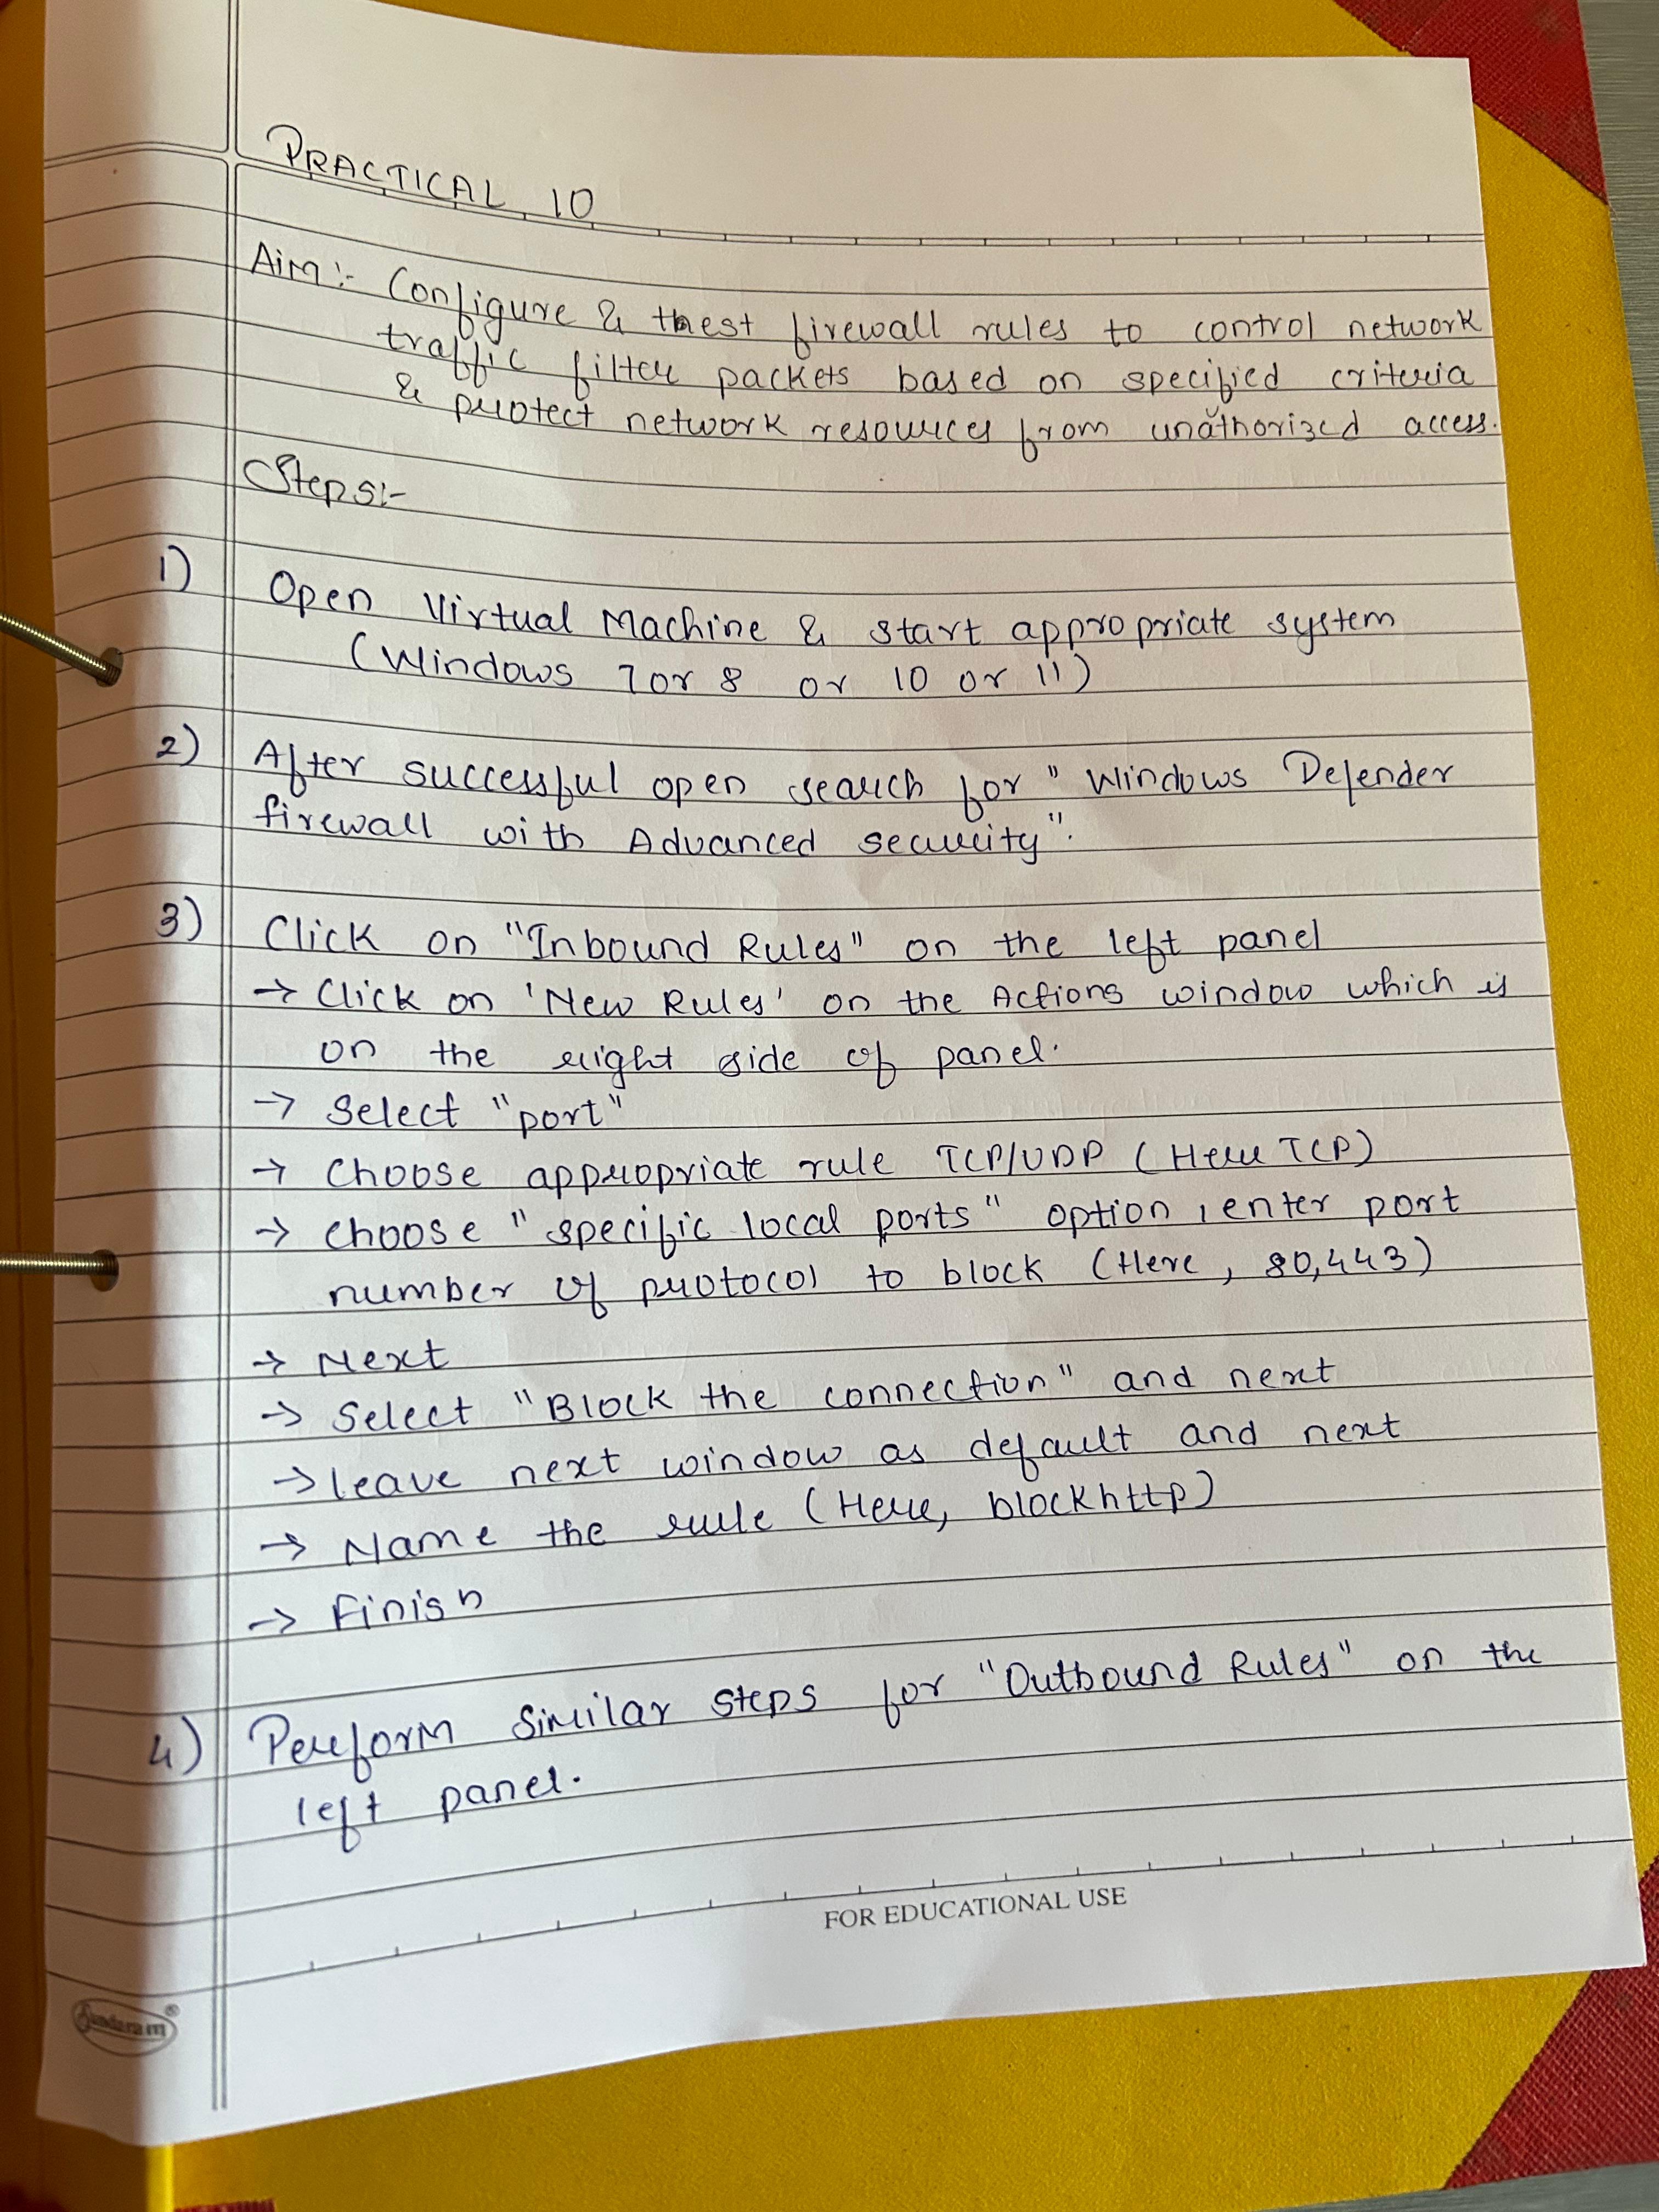 PRACTICAL 10
Aim:- Configure & thest firewall rules to control network
traffic filter packets based on specified criteria
& protect network resources from unathorized access.
Steps:-
1) Open Virtual Machine & start appropriate system
(Windows 7 or 8 or 10 or 11)
2) After successful open search for " Windows Defender
firewall with Advanced security".
3) Click on "Inbound Rules" on the left panel
→ Click on 'New Rules' on the Actions window which is
on the right side of panel.
→ Select "port"
→ Choose appropriate rule TCP/UDP (Here TCP)
→ choose "specific local ports" option, enter port
number of protocol to block (Here, 80,443)
→ Next
→ Select "Block the connection" and next
→ leave next window as default and next
→ Name the rule (Here, blockhttp)
→ Finish
4) Perform similar steps for "Outbound Rules" on the
left panel.
FOR EDUCATIONAL USE
Sundaram®